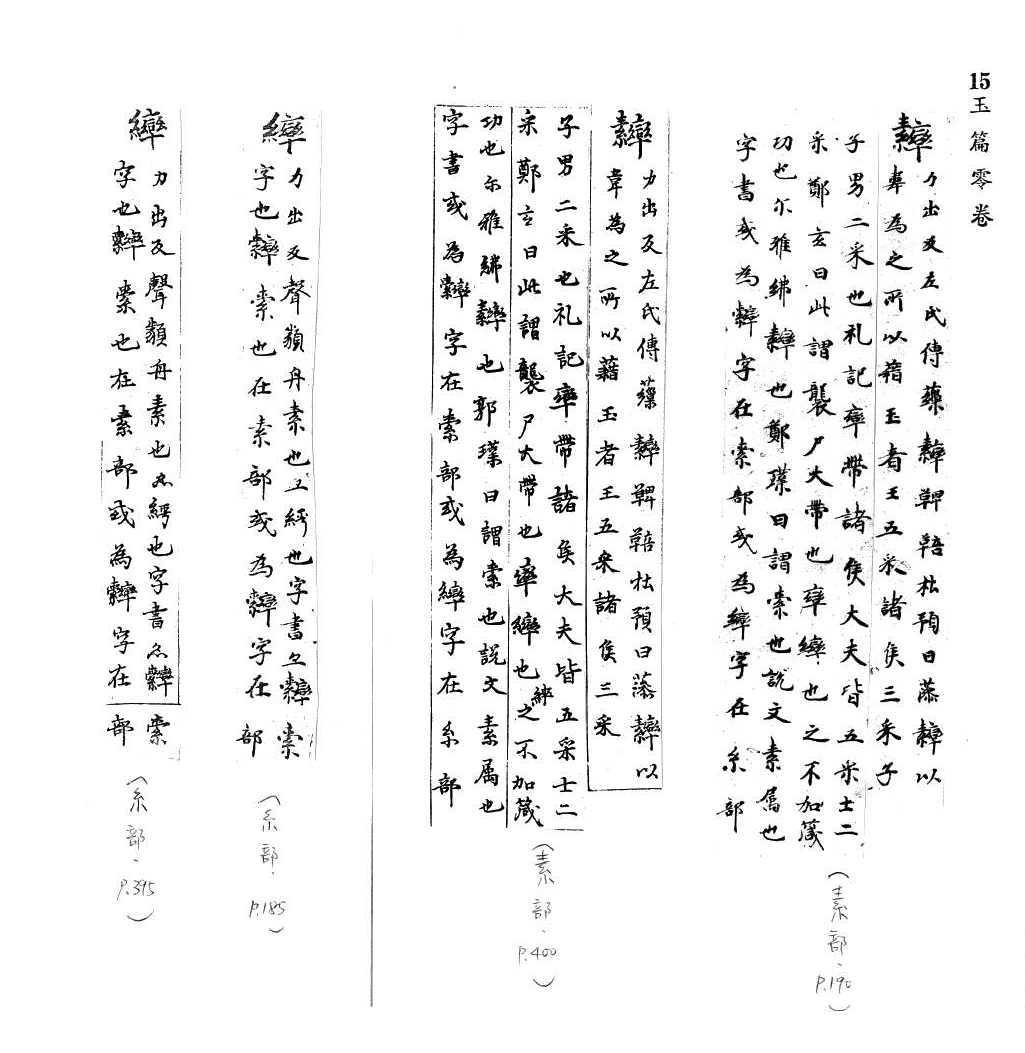 15
玉篇零卷
䋖
力出反左氏傳藻䋖鞞鞛杜預曰藻䋖以
韋為之所以藉玉者王五采諸侯三采子
子男二采也礼記率帶諸侯大夫皆五采士二
采鄭玄曰此謂襲尸大帶也率繂也之不加箴
功也尒雅紼䋖也鄭璞曰謂索也說文素属也
字書或為䋖字在索部或為繂字在糸部
(素部、P.190)
䋖
力出反左氏傳藻䋖鞞鞛杜預曰藻䋖以
韋為之所以藉玉者王五采諸侯三采
子男二采也礼記率帶諸侯大夫皆五采士二
采鄭玄曰此謂襲尸大帶也率繂也之不加箴
功也尒雅紼䋖也郭璞曰謂索也說文素属也
字書或為字在索部或為繂字在糸部
(素部、P.400)
繂
力出反聲類舟素也絼也字書䋖索
字也索也在素部或為字在部
(糸部、P.185)
繂
力出反聲類舟素也絼也字書索
字也索也在素部或為字在部
(糸部、P.395)